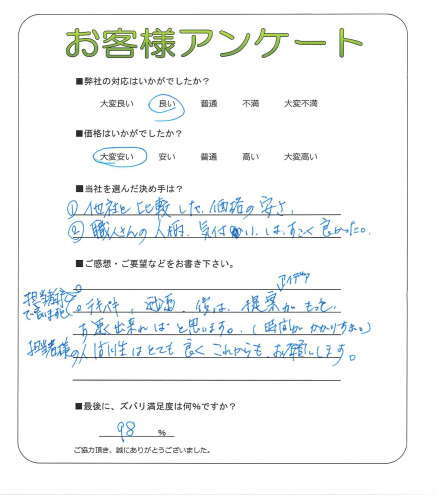 お客様アンケート
■弊社の対応はいかがでしたか？
大変良い 良い 普通 不満 大変不満
■価格はいかがでしたか？
大変安い 安い 普通 高い 大変高い
■当社を選んだ決め手は？
① 他社と比較した、価格の安さ、
② 職人さんの人柄、気付かい、は、すごく良かった。
■ご感想・ご要望などをお書き下さい。
アイデア
担当者
提案がもっと
出来ればと思います。（時間がかかりすぎ。）
担当者様の人間性はとても良くこれからも、お願いします。
■最後に、ズバリ満足度は何％ですか？
98 ％
ご協力頂き、誠にありがとうございました。